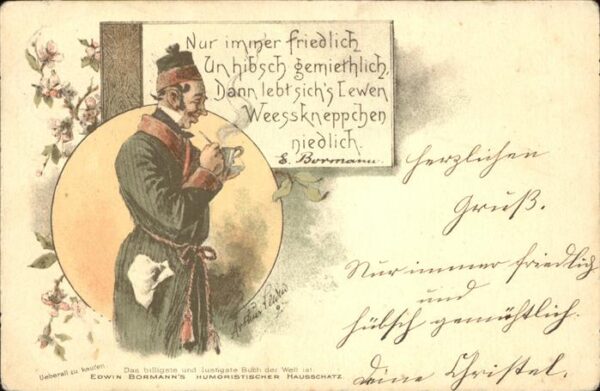 Nur immer friedlich
Un hibsch gemiethlich,
Dann lebt sich's Lewen
Weessknepp­chen
niedlich.
E. Bormann.
Herzlichen
Gruß.
Nur immer friedlich
und
hübsch gemühtlich.
Deine Christel.
Ueberall zu kaufen
Das billigste und lustigste Buch der Welt ist:
EDWIN BORMANN'S HUMORISTISCHER HAUSSCHATZ.